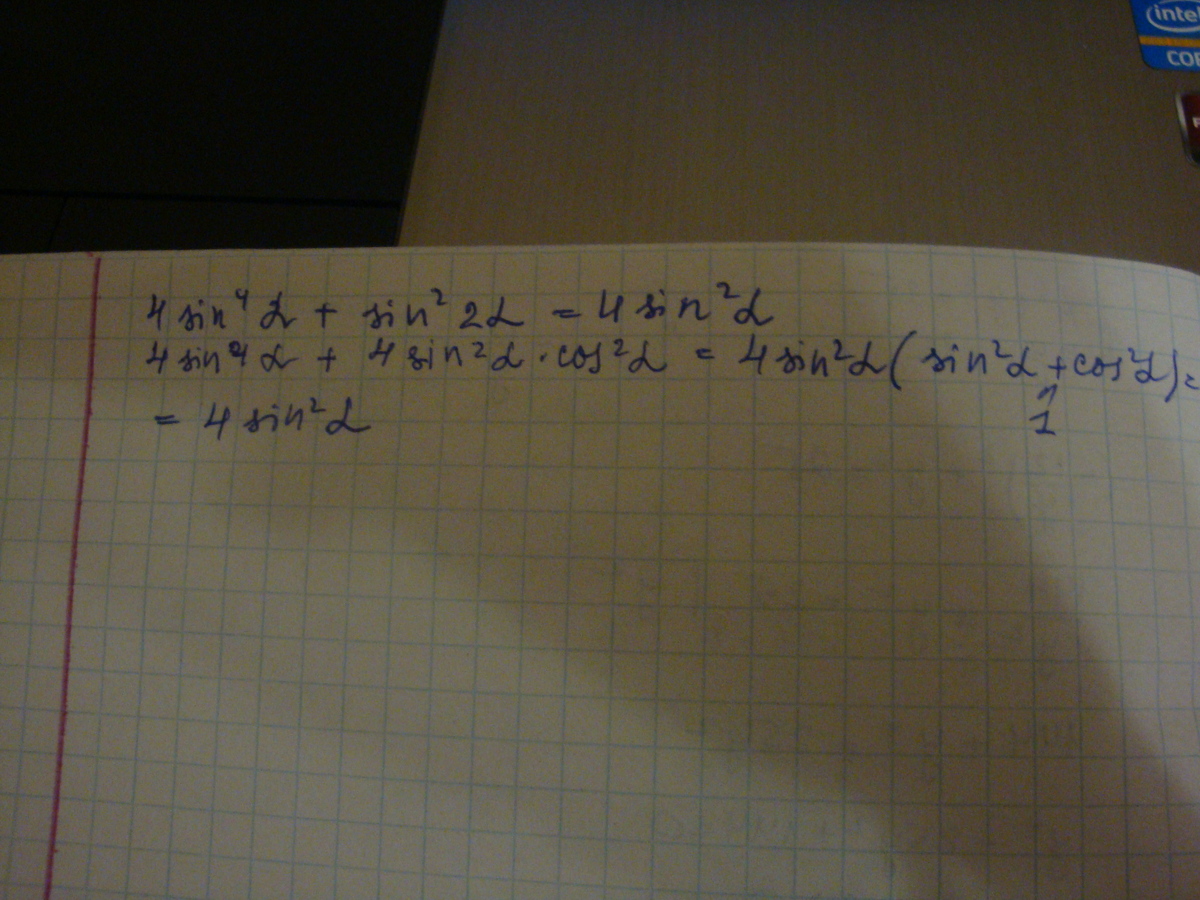 intel
COR
4 sin⁴ α + sin² 2α = 4 sin² α
4 sin⁴ α + 4 sin² α · cos² α = 4 sin² α ( sin² α + cos² α ) =
1
= 4 sin² α